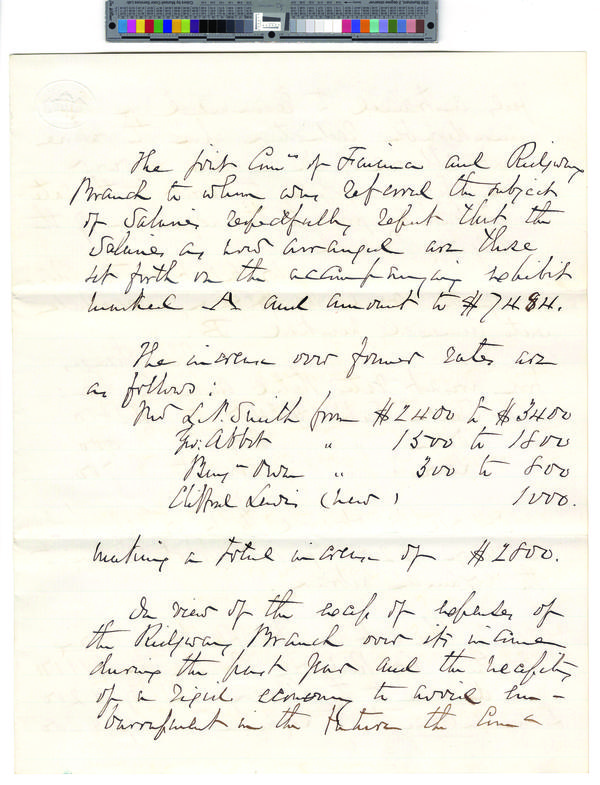 The joint Com^ee of Finance and Ridgway
Branch to whom was referred the subject
of Salaries respectfully report that the
Salaries as now arranged are those
set forth on the accompanying exhibit
marked A and amount to $7484.
The increase over former rates are
as follows:
L.P. Smith from $2400 to $3400
Geo: Abbot " 1500 to 1800
Benj^n Owen " 300 to 800
Clifford Lewis (new) 1000.
making a total increase of $2800.
In view of the excess of expenses of
the Ridgway Branch over its income
during the past year and the necessity
of a rigid economy to avoid em-
barrassment in the future the Com^ee